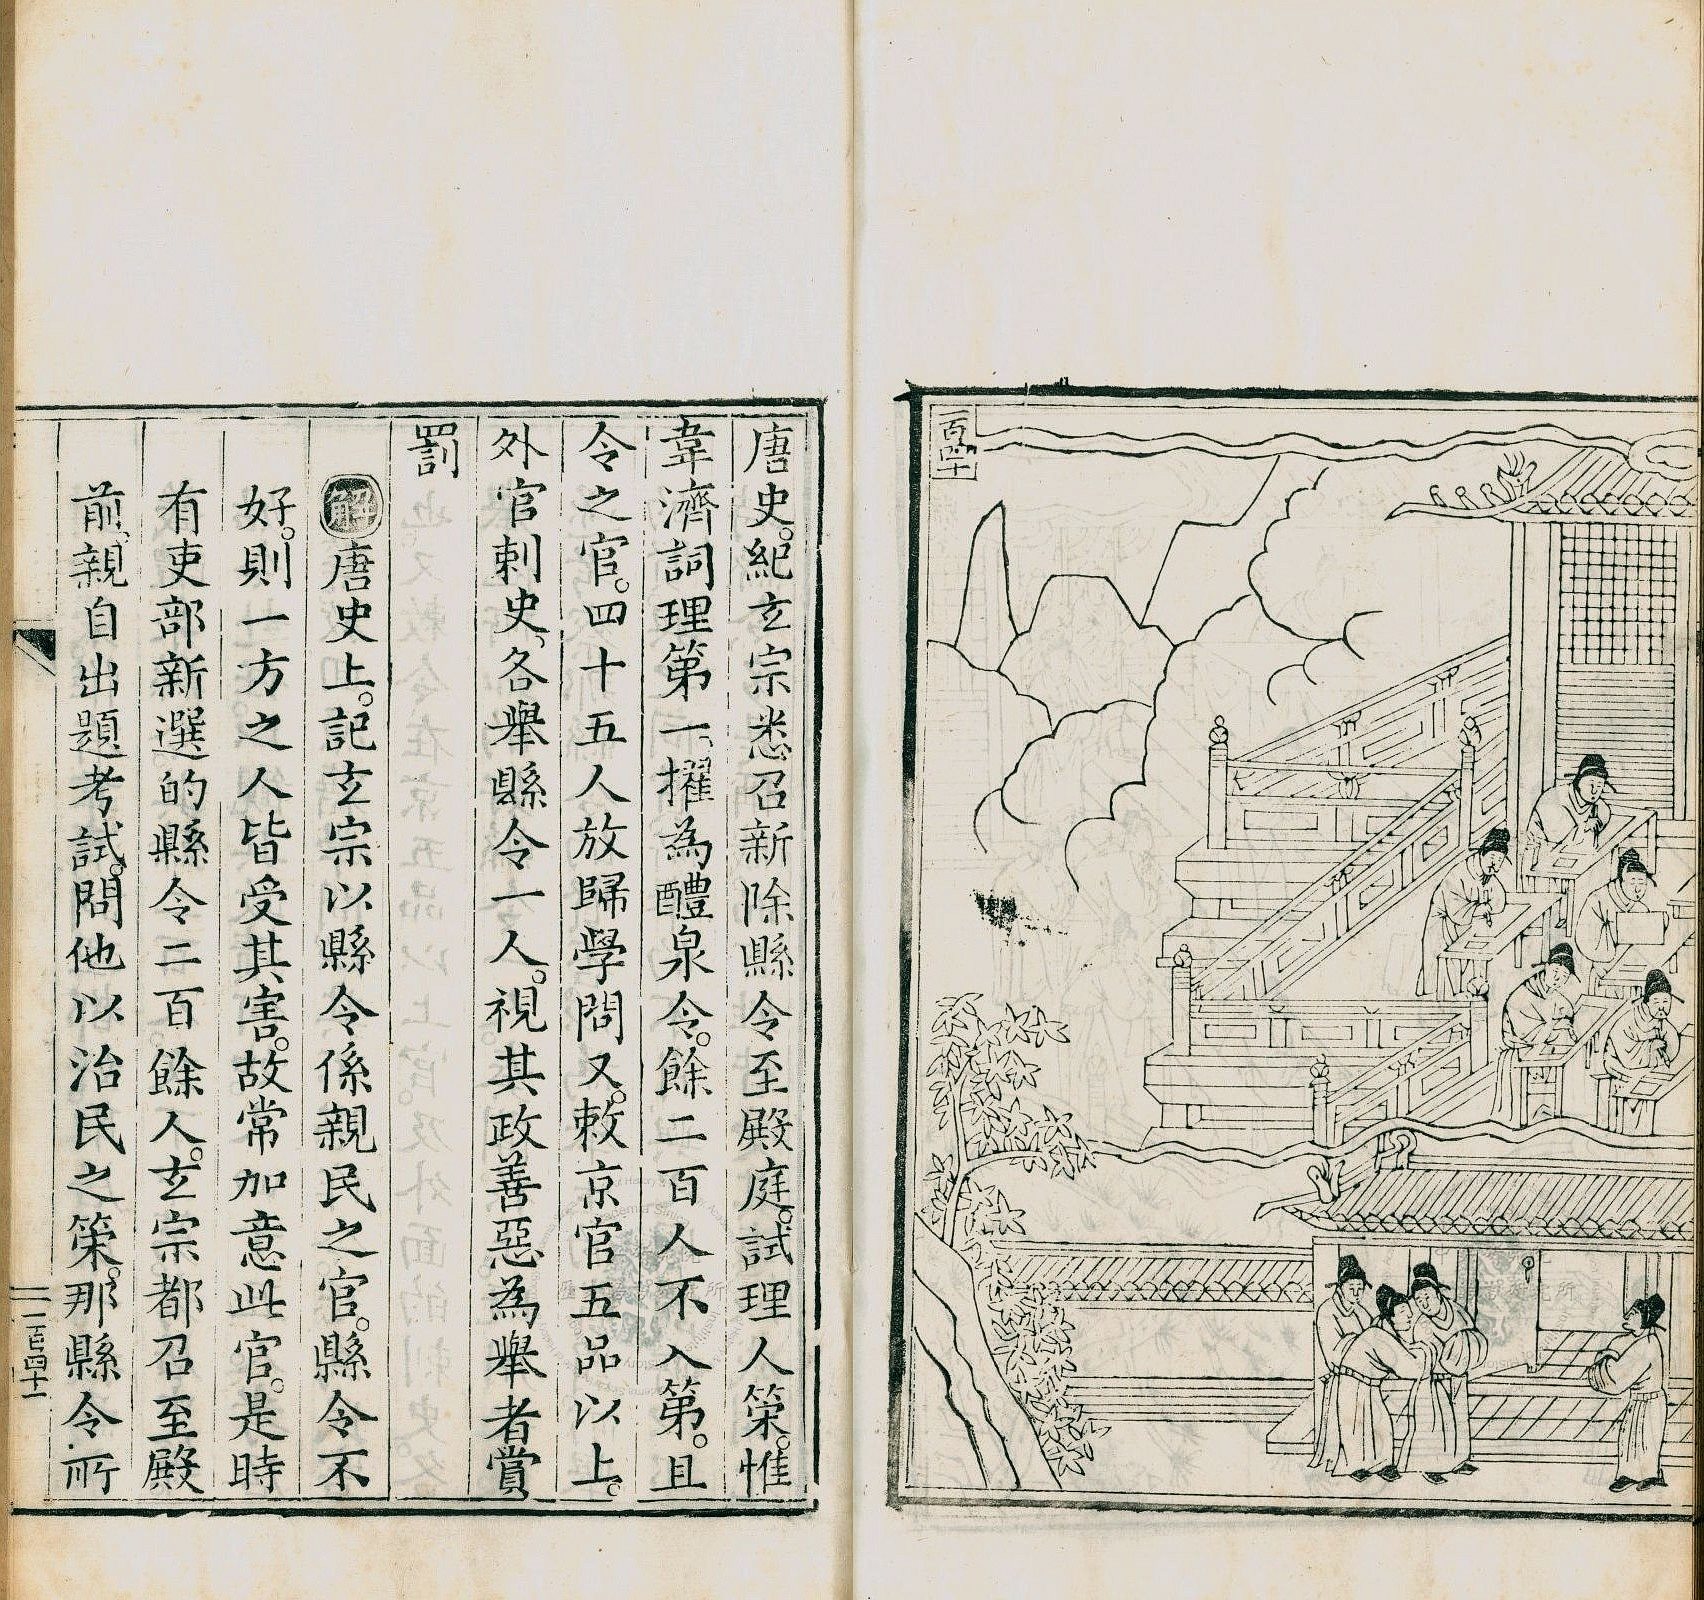 一百四十
唐史。紀玄宗悉召新除縣令至殿庭。試理人策。惟
韋濟詞理第一、擢為醴泉令。餘二百人不入第。且
令之官。四十五人放歸學問。又敕京官五品以上。
外官刺史、各舉縣令一人。視其政善惡為舉者賞
罰
解唐史上。記玄宗以縣令係親民之官。縣令不
好。則一方之人皆受其害。故常加意此官。是時
有吏部新選的縣令二百餘人。玄宗都召至殿
前、親自出題考試。問他以治民之策。那縣令所
一百四十一